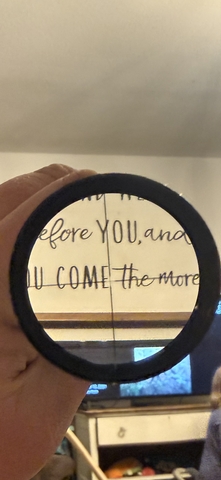 efore YOU, and
OU COME the more